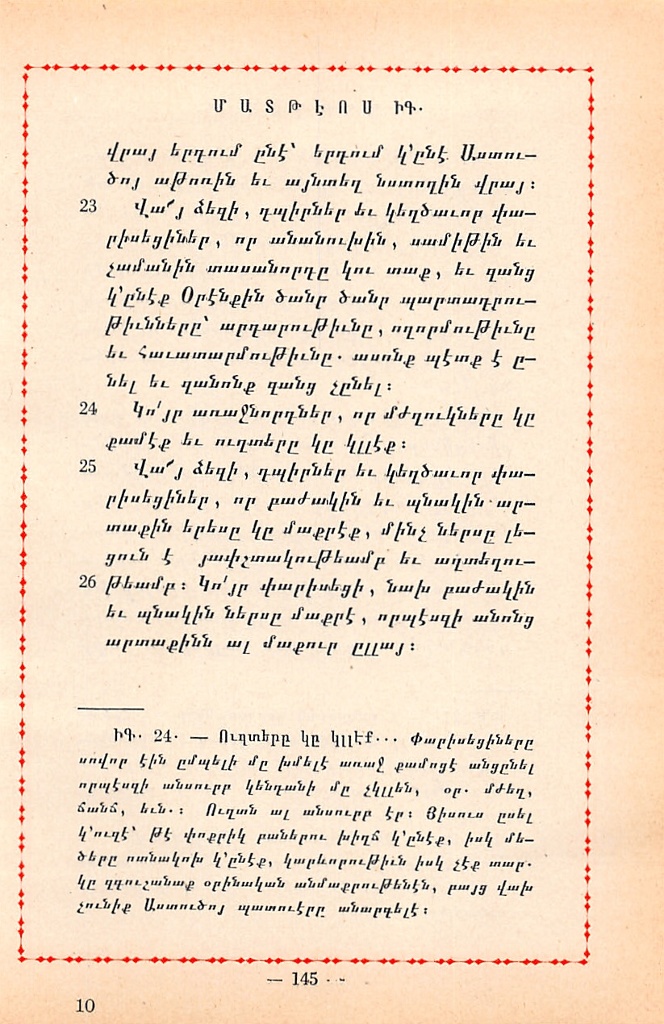 ՄԱՏԹԷՈՍ ԻԳ.
վրայ երդում ընէ՝ երդում կ՚ընէ Աստու–
ծոյ աթոռին եւ այնտեղ նստողին վրայ։
23 Վա՜յ ձեզի, դպիրներ եւ կեղծաւոր փա–
րիսեցիներ, որ անանուխին, սամիթին եւ
չամանին տասանորդը կու տաք, եւ զանց
կ՚ընէք Օրէնքին ծանր ծանր պարտադրու–
թիւնները՝ արդարութիւնը, ողորմութիւնը
եւ հաւատարմութիւնը. ասոնք պէտք է ը–
նել եւ զանոնք զանց չընել։
24 Կո՛յր առաջնորդներ, որ մժղուկները կը
քամէք եւ ուղտերը կը կլլէք։
25 Վա՜յ ձեզի, դպիրներ եւ կեղծաւոր փա–
րիսեցիներ, որ բաժակին եւ պնակին ար–
տաքին երեսը կը մաքրէք, մինչ ներսը լե–
ցուն է յափշտակութեամբ եւ աղտեղու–
26 թեամբ։ Կո՛յր փարիսեցի, նախ բաժակին
եւ պնակին ներսը մաքրէ, որպէսզի անոնց
արտաքինն ալ մաքուր ըլլայ։
ԻԳ. 24. — Ուղտերը կը կլլէք... Փարիսեցիները
սովոր էին ըմպելի մը խմելէ առաջ քամոցէ անցընել
որպէսզի անսուրբ կենդանի մը չկլլեն, օր. մժեղ,
ճանճ, եւն.։ Ուղտն ալ անսուրբ էր։ Յիսուս ըսել
կ՚ուզէ՝ թէ փոքրիկ բաներու խիղճ կ՚ընէք, իսկ մե–
ծերը ոտնակոխ կ՚ընէք, կարեւորութիւն իսկ չէք տար.
կը զգուշանաք օրինական անմաքրութենէն, բայց վախ
չունիք Աստուծոյ պատուէրը անարգելէ։
— 145 –
10